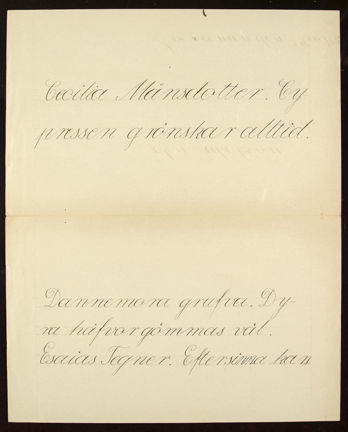 Cecilia Månsdotter. Cy
pressen grönskar alltid.
Dannemora grufva. Dy-
ra håfvor gömmas väl.
Esaias Tegner. Eftersinna kan